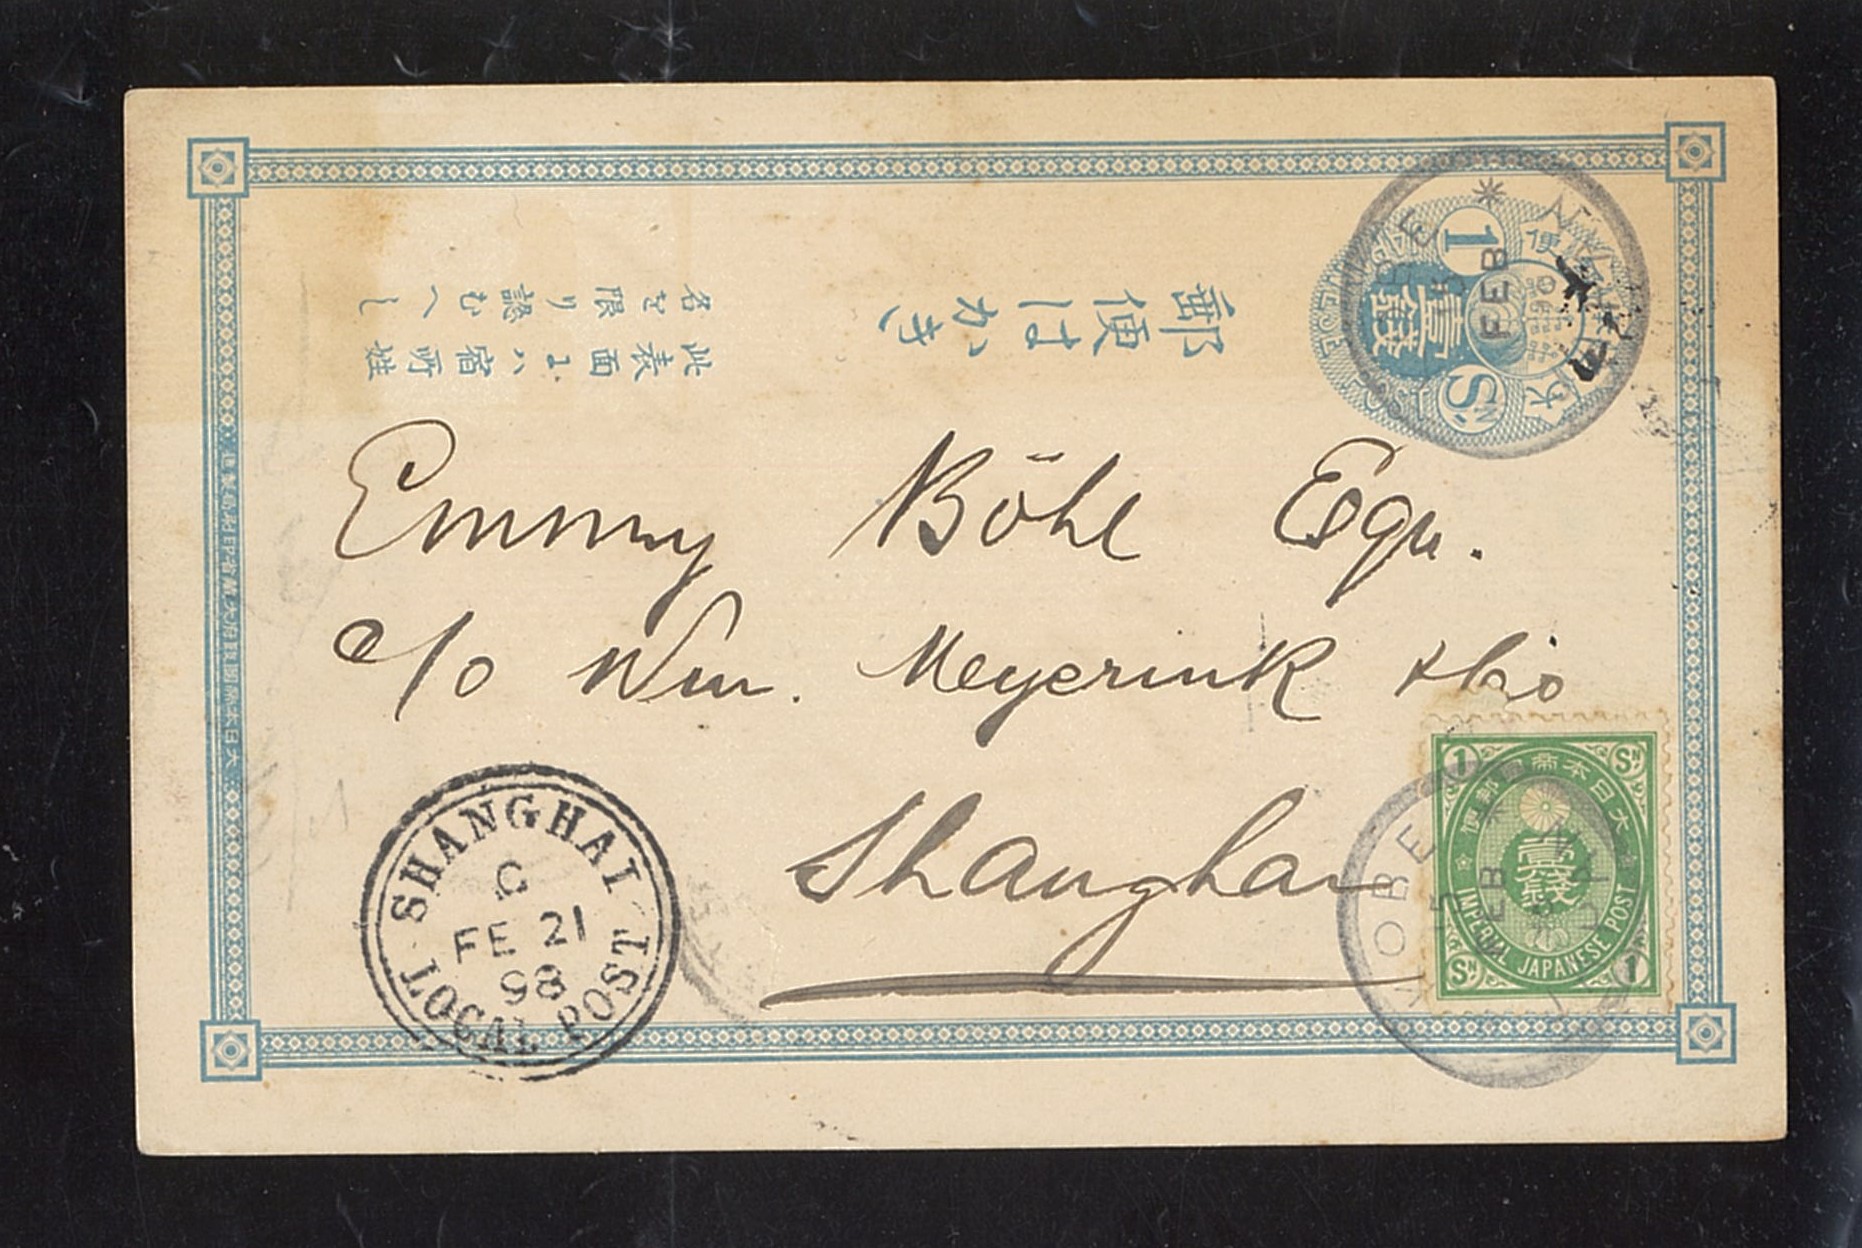 郵便はかき
此表面ニハ宿所姓
名を限り認むへし
壹錢
1
Sⁿ
FEB
Emmy Böhl Esqu.
c/o Wm. Meyerink & Co
Shanghai
SHANGHAI
C
FE 21
98
LOCAL POST
大日本帝國郵便
壹錢
1
Sⁿ
Sⁿ
1
IMPERIAL JAPANESE POST
KOBE
JAPAN
FEB